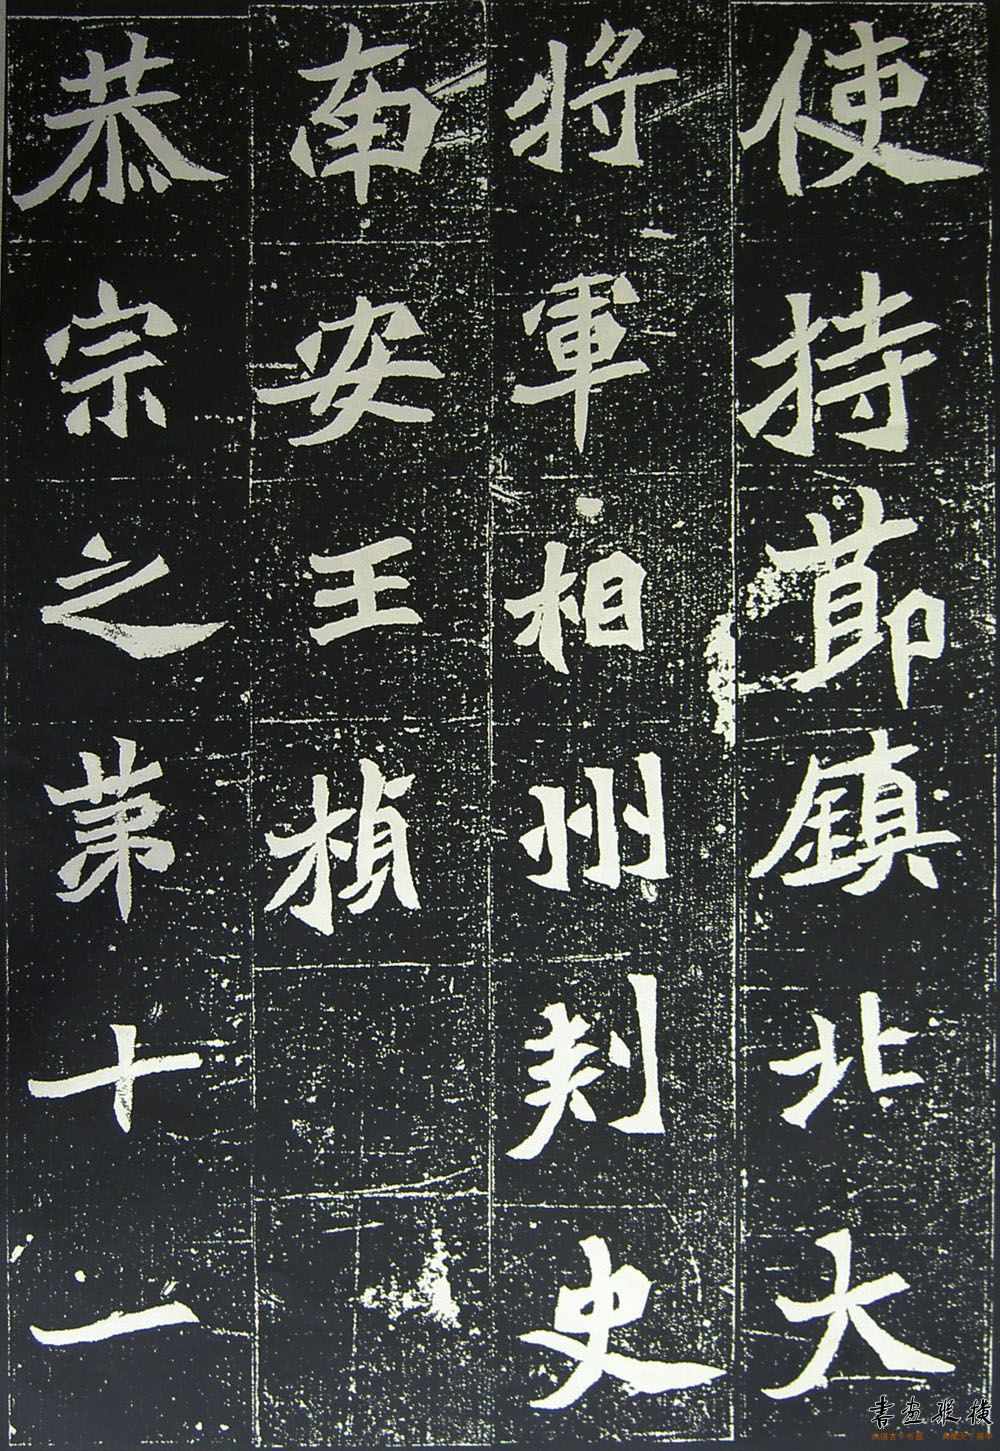 使持節鎮北大
將軍相州刺史
南安王楨
恭宗之第十一
書畫縱橫